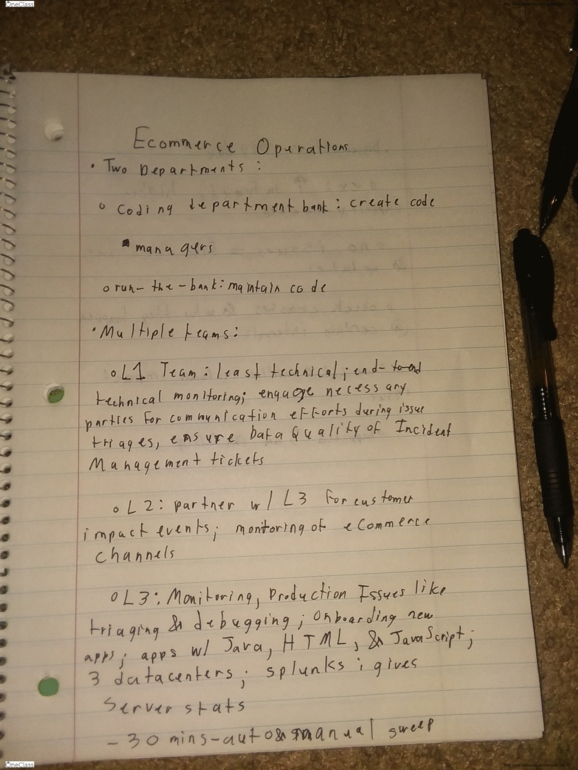 OneClass
Ecommerce Operations
• Two Departments:
o Coding department bank: create code
▪ managers
o run-the-bank: maintain code
• Multiple teams:
o L1 Team: least technical; end-to-end
technical monitoring; engage necessary
parties for communication efforts during issue
triages, ensure Data Quality of Incident
Management tickets
o L2: partner w/ L3 for customer
impact events; monitoring of eCommerce
channels
o L3: Monitoring, Production Issues like
triaging & debugging; Onboarding new
apps; apps w/ Java, HTML, & JavaScript;
3 datacenters; splunks; gives
Server stats
- 30 mins-auto & manual sweep
OneClass